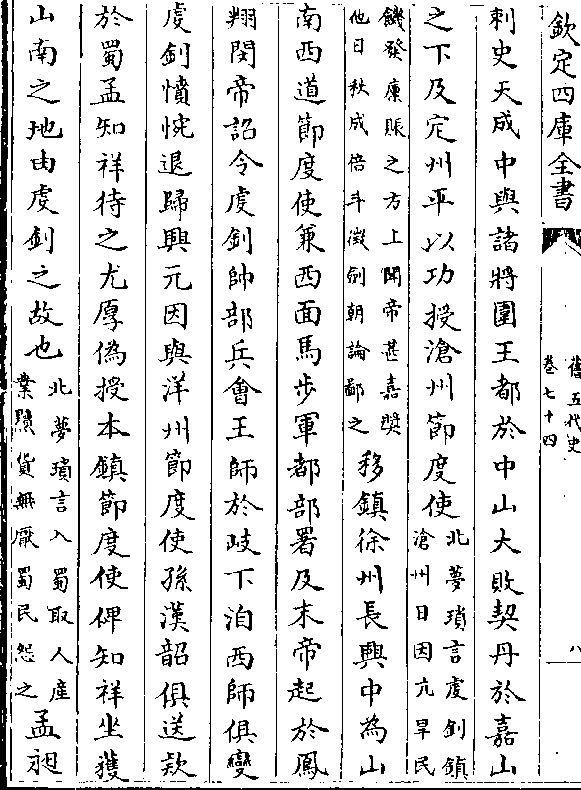 欽定四庫全書
舊五代史
卷七十四
八
刺史天成中與諸將圍王都於中山大敗契丹於嘉山
之下及定州平以功授滄州節度使
北夢瑣言虔釗鎮
滄州日因亢旱民
饑發廩賑之方上聞帝甚嘉奬
他日秋成倍斗徵斂朝論鄙之
移鎮徐州長興中為山
南西道節度使兼西面馬步軍都部署及末帝起於鳳
翔閔帝詔令虔釗帥部兵會王師於岐下洎西師俱變
虔釗憤惋退歸興元因與洋州節度使孫漢韶俱送款
於蜀孟知祥待之尤厚偽授本鎮節度使俾知祥坐獲
山南之地由虔釗之故也
北夢瑣言入蜀取人産
業黷貨無厭蜀民怨之
孟昶